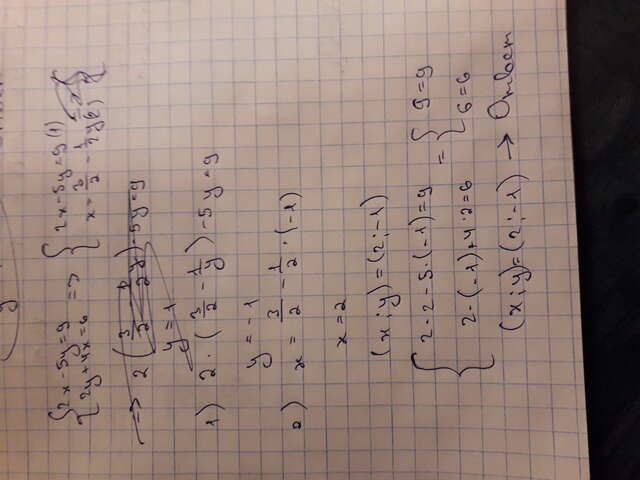 {2x-5y=9 {2y+4x=6 => {2x-5y=9 (1) {x=3/2-1/2y (2)
=> 2(3/2-1/2y)-5y=9
y=1
1) 2·(3/2-1/y)-5y=9
y=-1
2) x=3/2-1/2·(-1)
x=2
(x;y)=(2;-1)
{2·2-5·(-1)=9 {2·(-1)+4·2=6 = {9=9 {6=6
(x;y)=(2;-1) → Ответ